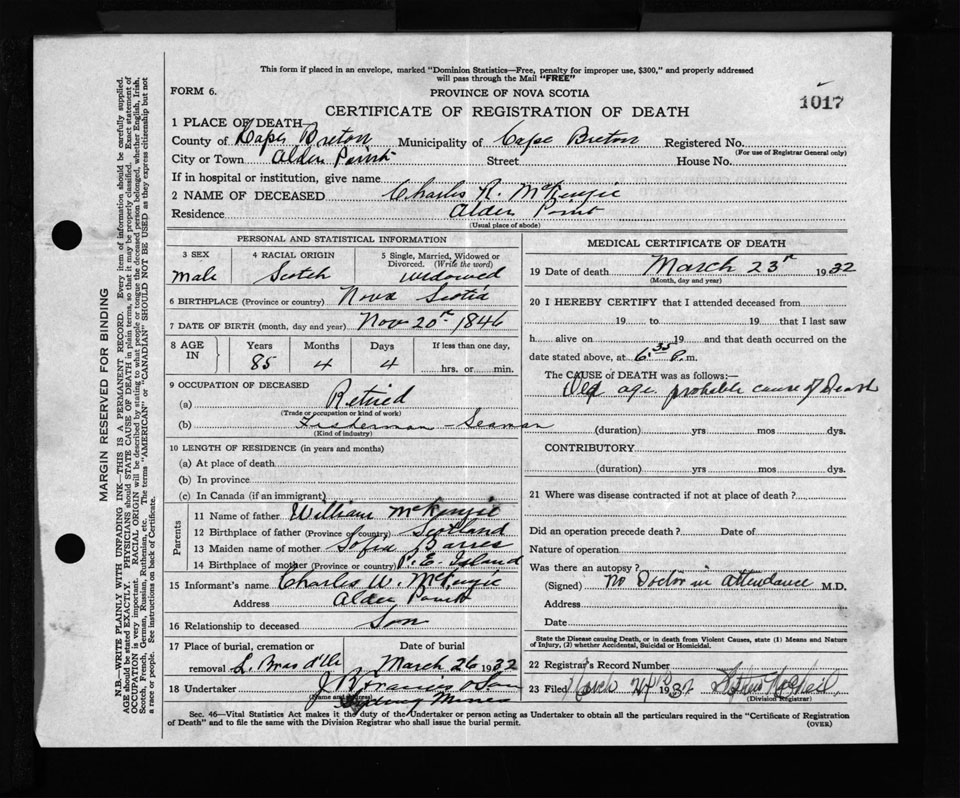 This form if placed in an envelope, marked "Dominion Statistics—Free, penalty for improper use, $300," and properly addressed
will pass through the Mail "FREE"
FORM 6.
PROVINCE OF NOVA SCOTIA
1017
CERTIFICATE OF REGISTRATION OF DEATH
1 PLACE OF DEATH—
County of Cape Breton Municipality of Cape Breton Registered No.
(For use of Registrar General only)
City or Town Alder Point Street House No.
If in hospital or institution, give name
2 NAME OF DECEASED Charles R. McKenzie
Residence Alder Point
(Usual place of abode)
PERSONAL AND STATISTICAL INFORMATION
3 SEX 4 RACIAL ORIGIN 5 Single, Married, Widowed or
Divorced. (Write the word)
Male Scotch Widowed
6 BIRTHPLACE (Province or country) Nova Scotia
7 DATE OF BIRTH (month, day and year) Nov 20th 1846
8 AGE IN Years Months Days If less than one day,
85 4 4 hrs. or min.
9 OCCUPATION OF DECEASED
(a) Retired
(Trade or occupation or kind of work)
(b) Fisherman - Seaman
(Kind of industry)
10 LENGTH OF RESIDENCE (in years and months)
(a) At place of death
(b) In province
(c) In Canada (if an immigrant)
Parents
11 Name of father William McKenzie
12 Birthplace of father (Province or country) Scotland
13 Maiden name of mother Sofia
14 Birthplace of mother (Province or country) P. E. Island
15 Informant's name Charles W. McKenzie
Address Alder Point
16 Relationship to deceased Son
17 Place of burial, cremation or Date of burial
removal L. Bras d'Or March 26 1932
18 Undertaker J B Francis & Son
(Name and address)
Sydney Mines
MEDICAL CERTIFICATE OF DEATH
19 Date of death March 23rd 1932
(Month, day and year)
20 I HEREBY CERTIFY that I attended deceased from
19 to 19 that I last saw
h alive on 19 and that death occurred on the
date stated above, at 6:35 P.m.
The CAUSE of DEATH was as follows:—
Old age probable cause of Death
(duration) yrs mos dys.
CONTRIBUTORY
(duration) yrs mos dys.
21 Where was disease contracted if not at place of death?
Did an operation precede death? Date of
Nature of operation
Was there an autopsy?
(Signed) No Doctor in attendance M.D.
Address
Date
State the Disease causing Death, or in death from Violent Causes, state (1) Means and Nature
of Injury, (2) whether Accidental, Suicidal or Homicidal.
22 Registrar's Record Number
23 Filed March 193
(Division Registrar)
Sec. 46—Vital Statistics Act makes it the duty of the Undertaker or person acting as Undertaker to obtain all the particulars required in the "Certificate of Registration
of Death" and to file the same with the Division Registrar who shall issue the burial permit.
(OVER)
MARGIN RESERVED FOR BINDING
N.B.—WRITE PLAINLY WITH UNFADING INK—THIS IS A PERMANENT RECORD. Every item of information should be carefully supplied.
AGE should be stated EXACTLY. PHYSICIANS should STATE CAUSE OF DEATH in plain terms, so that it may be properly classified. Exact statement of
OCCUPATION is very important. RACIAL ORIGIN will be described by stating to what people or tongue the deceased person belonged, whether English, Irish,
Scotch, French, German, Russian, Ruthenian, etc. The terms "AMERICAN" or "CANADIAN" SHOULD NOT BE USED as they express citizenship but not
a race or people. See instructions on back of Certificate.